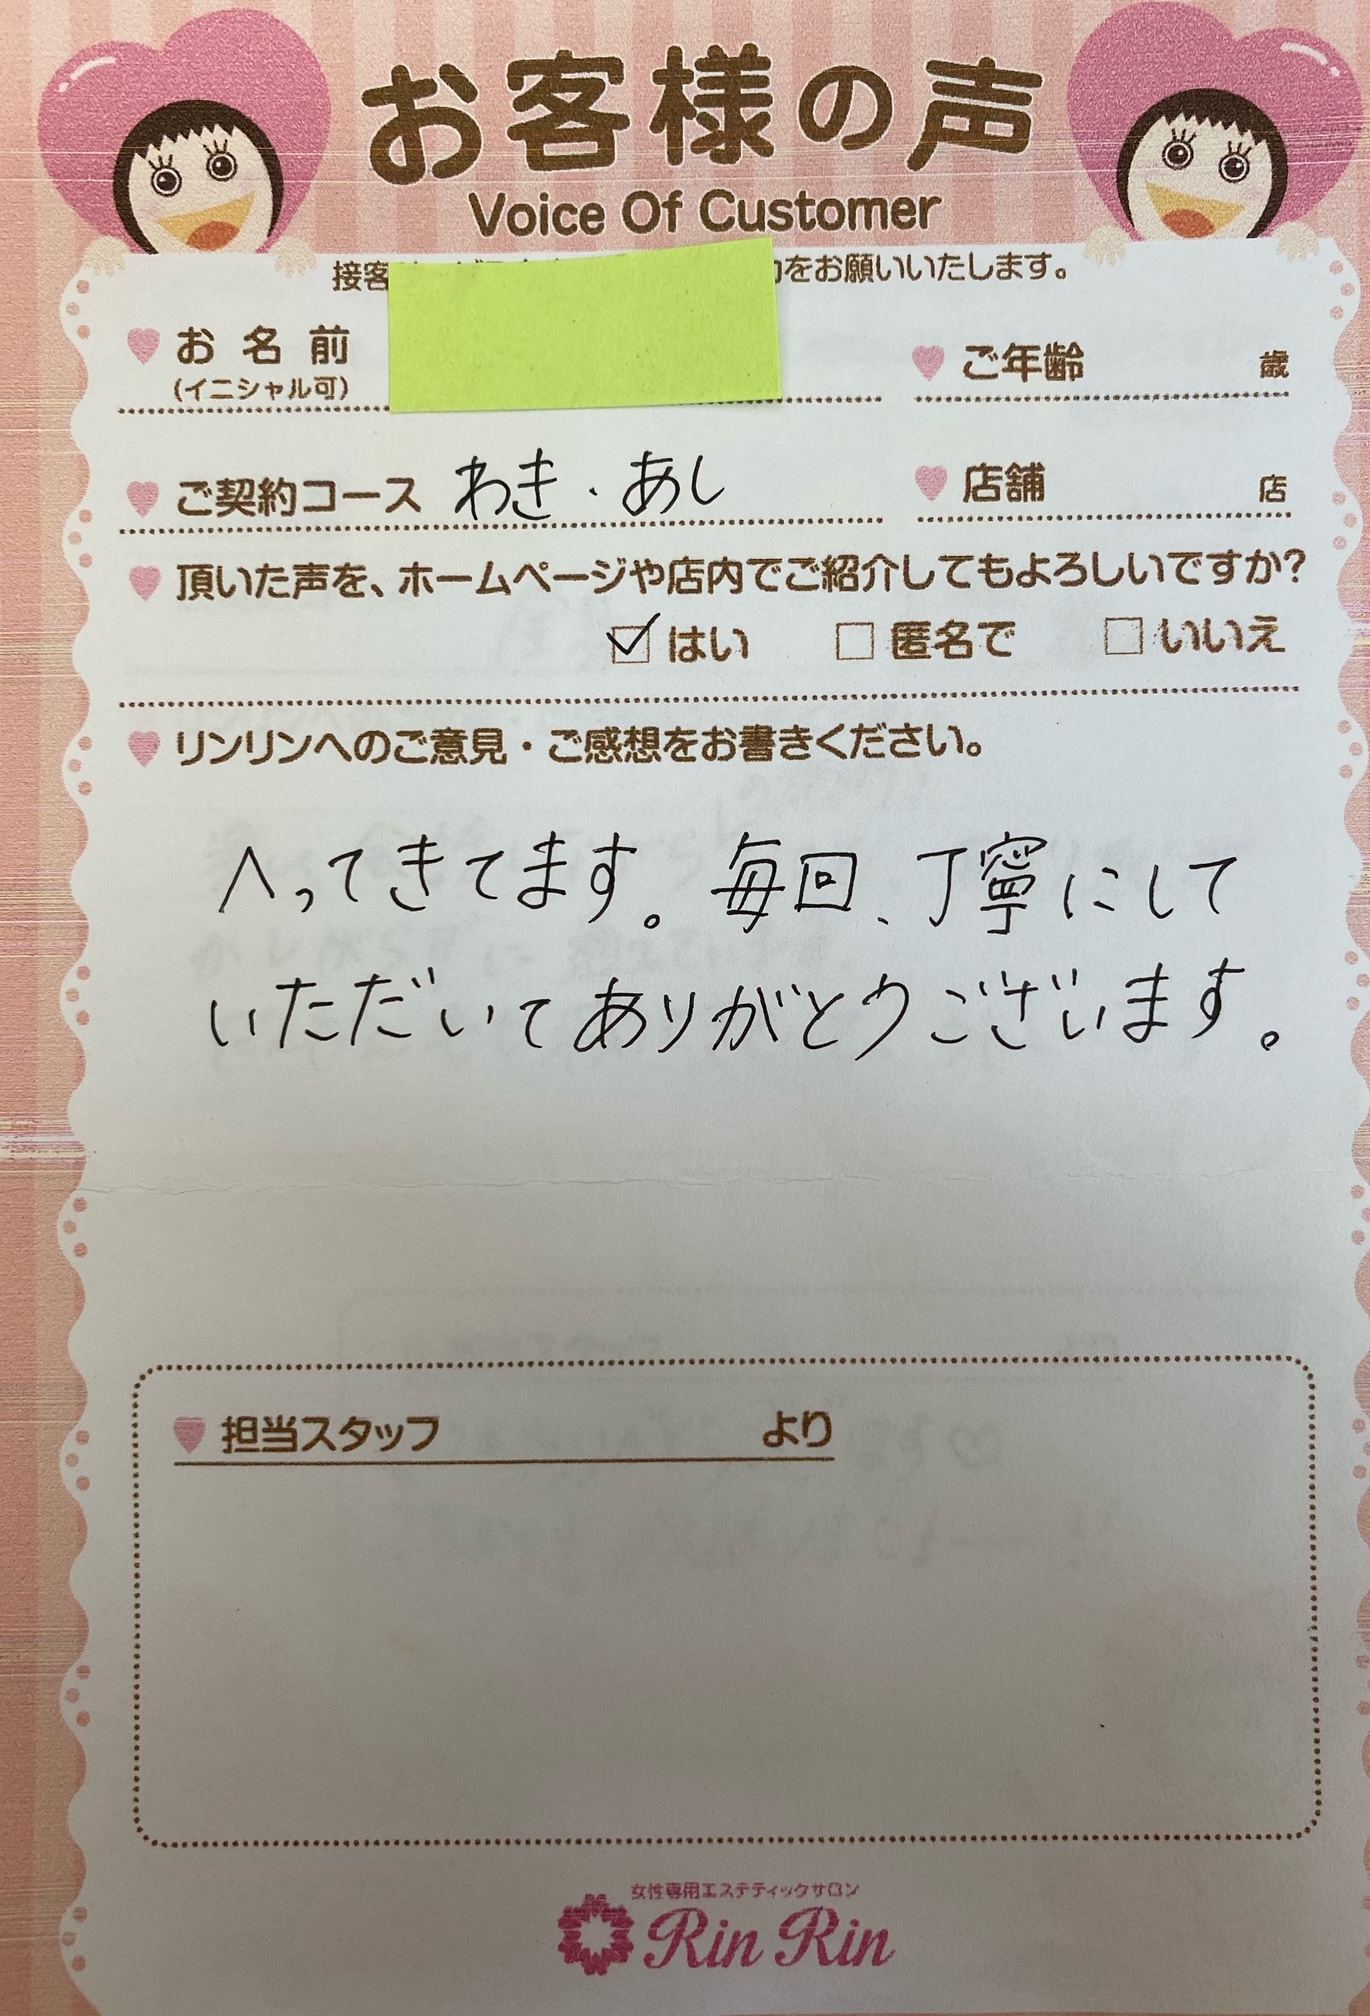 お客様の声
Voice Of Customer
接客 をお願いいたします。
お名前 ご年齢 歳
(イニシャル可)
ご契約コース わき・あし 店舗 店
頂いた声を、ホームページや店内でご紹介してもよろしいですか?
はい 匿名で いいえ
リンリンへのご意見・ご感想をお書きください。
へってきてます。毎回、丁寧にして
いただいてありがとうございます。
担当スタッフ より
女性専用エステティックサロン
Rin Rin